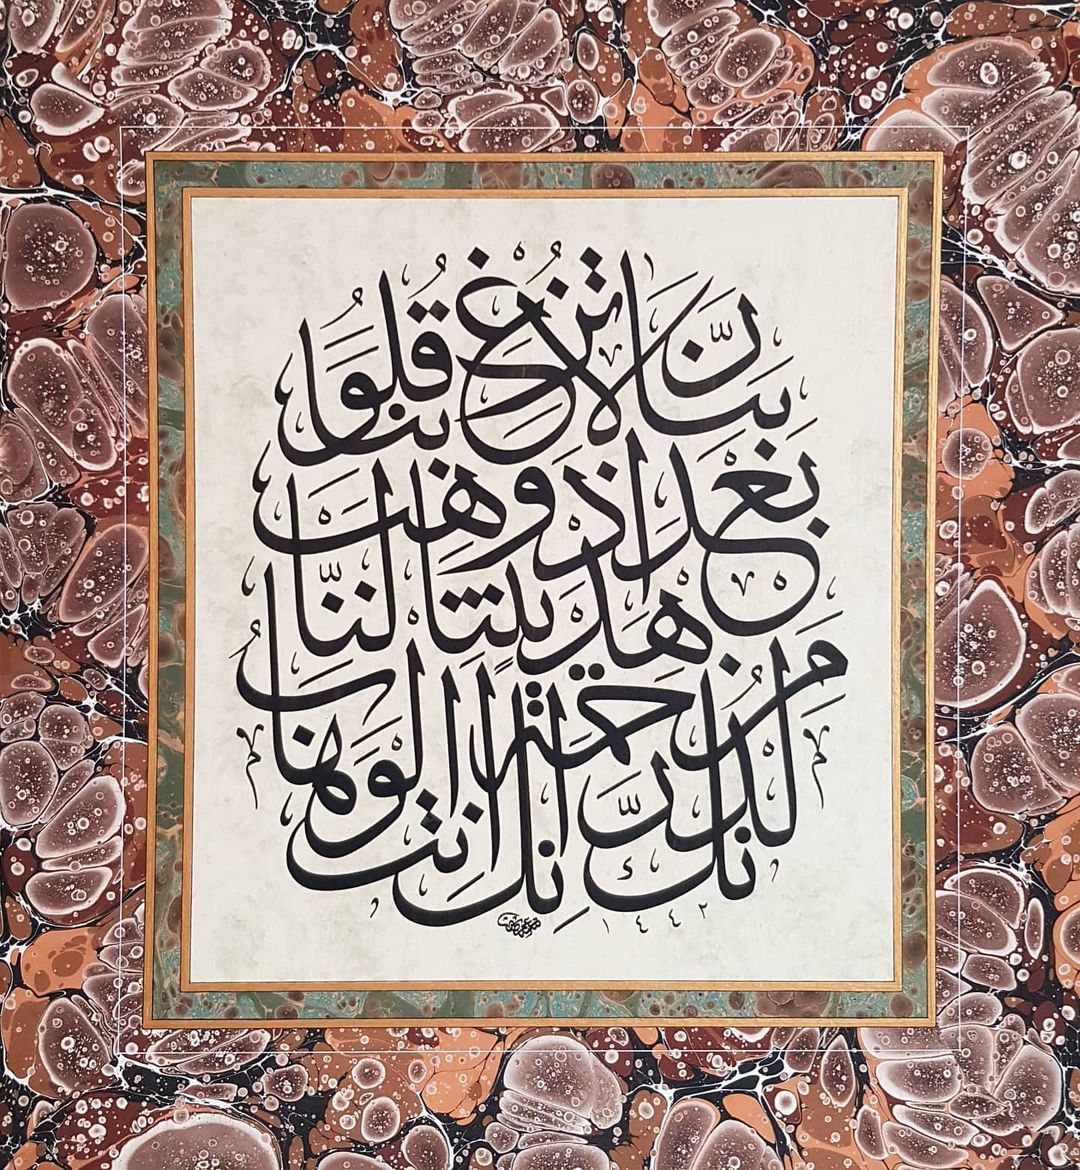 رَبَّنَا لَا تُزِغْ قُلُوبَنَا
بَعْدَ إِذْ هَدَيْتَنَا وَهَبْ لَنَا
مِن لَّدُنكَ رَحْمَةً إِنَّكَ أَنتَ الْوَهَّابُ
١٤٤٢